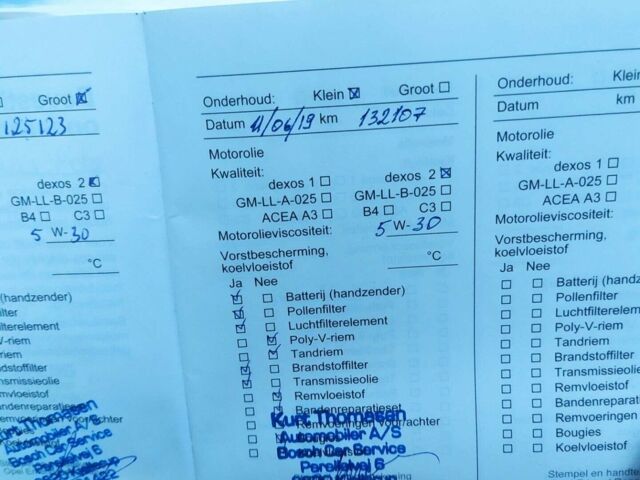 Groot
125123
dexos 2
GM-LL-B-025
B4 C3
5 W-30
°C
(handzender)
lter
lterelement
V-riem
riem
dstoffilter
nsmissieolie
mvloeistof
andenreparatieset
Kurt Thomasen
Automobiler A/S
Bosch Car Service
Parallelvej 6
Onderhoud: Klein Groot
Datum 11/06/19 km 132107
Motorolie
Kwaliteit:
dexos 1 dexos 2
GM-LL-A-025 GM-LL-B-025
ACEA A3 B4 C3
Motorolieviscositeit: 5 W-30
Vorstbescherming,
koelvloeistof °C
Ja Nee
Batterij (handzender)
Pollenfilter
Luchtfilterelement
Poly-V-riem
Tandriem
Brandstoffilter
Transmissieolie
Remvloeistof
Bandenreparatieset
Remvoeringen voor/achter
Kurt Thomasen
Automobiler A/S
Bosch Car Service
Parallelvej 6
Onderhoud: Klein
Datum km
Motorolie
Kwaliteit:
dexos 1
GM-LL-A-025
ACEA A3
Motorolieviscositeit:
Vorstbescherming,
koelvloeistof
Ja Nee
Batterij (handz
Pollenfilter
Luchtfilterelem
Poly-V-riem
Tandriem
Brandstoffilter
Transmissieol
Remvloeistof
Bandenrepara
Remvoeringen
Bougies
Koelvloeistof
Stempel en handte